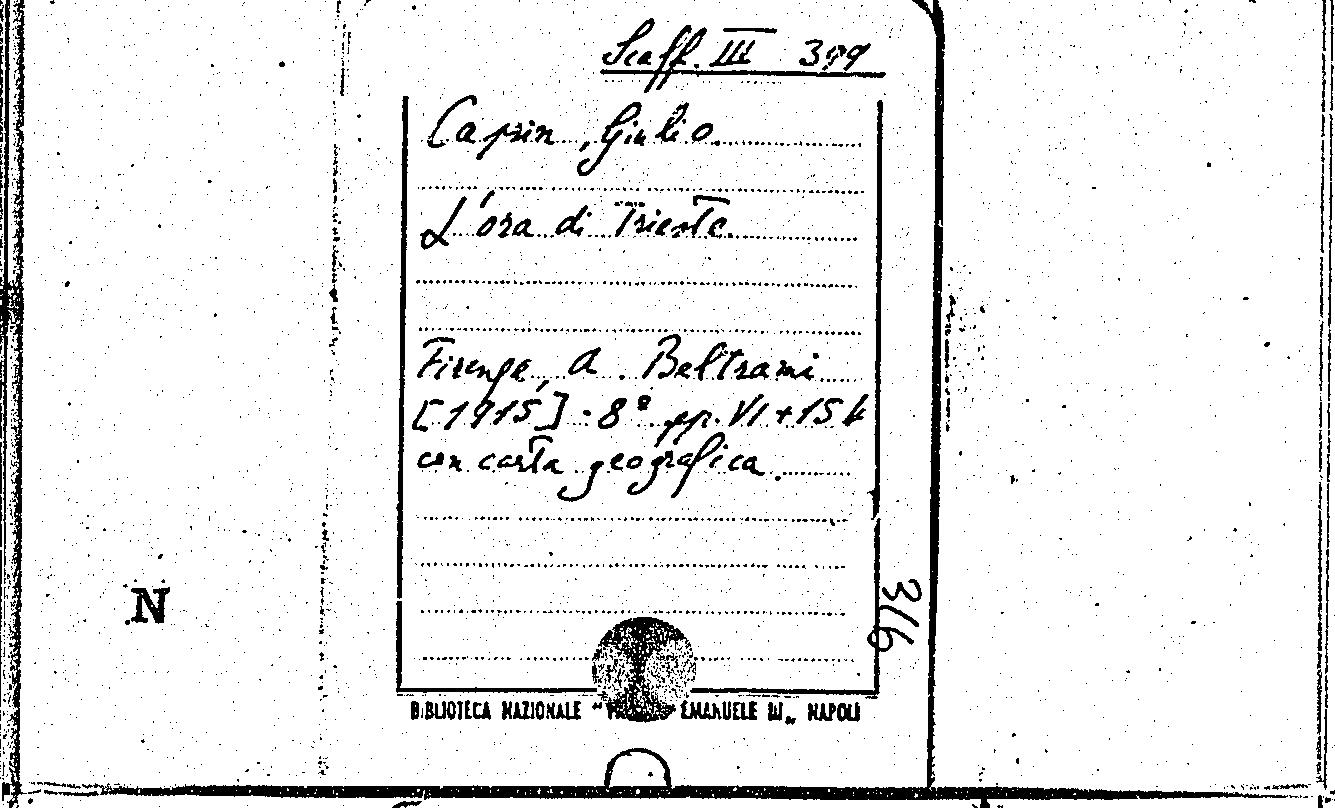 Scaff. III 399
Caprin, Giulio.
L'ora di Trieste.
Firenze, A. Beltrami
[1915] - 8° pp. VI + 154
con carta geografica.
316
N
BIBLIOTECA NAZIONALE " EMANUELE III„ NAPOLI